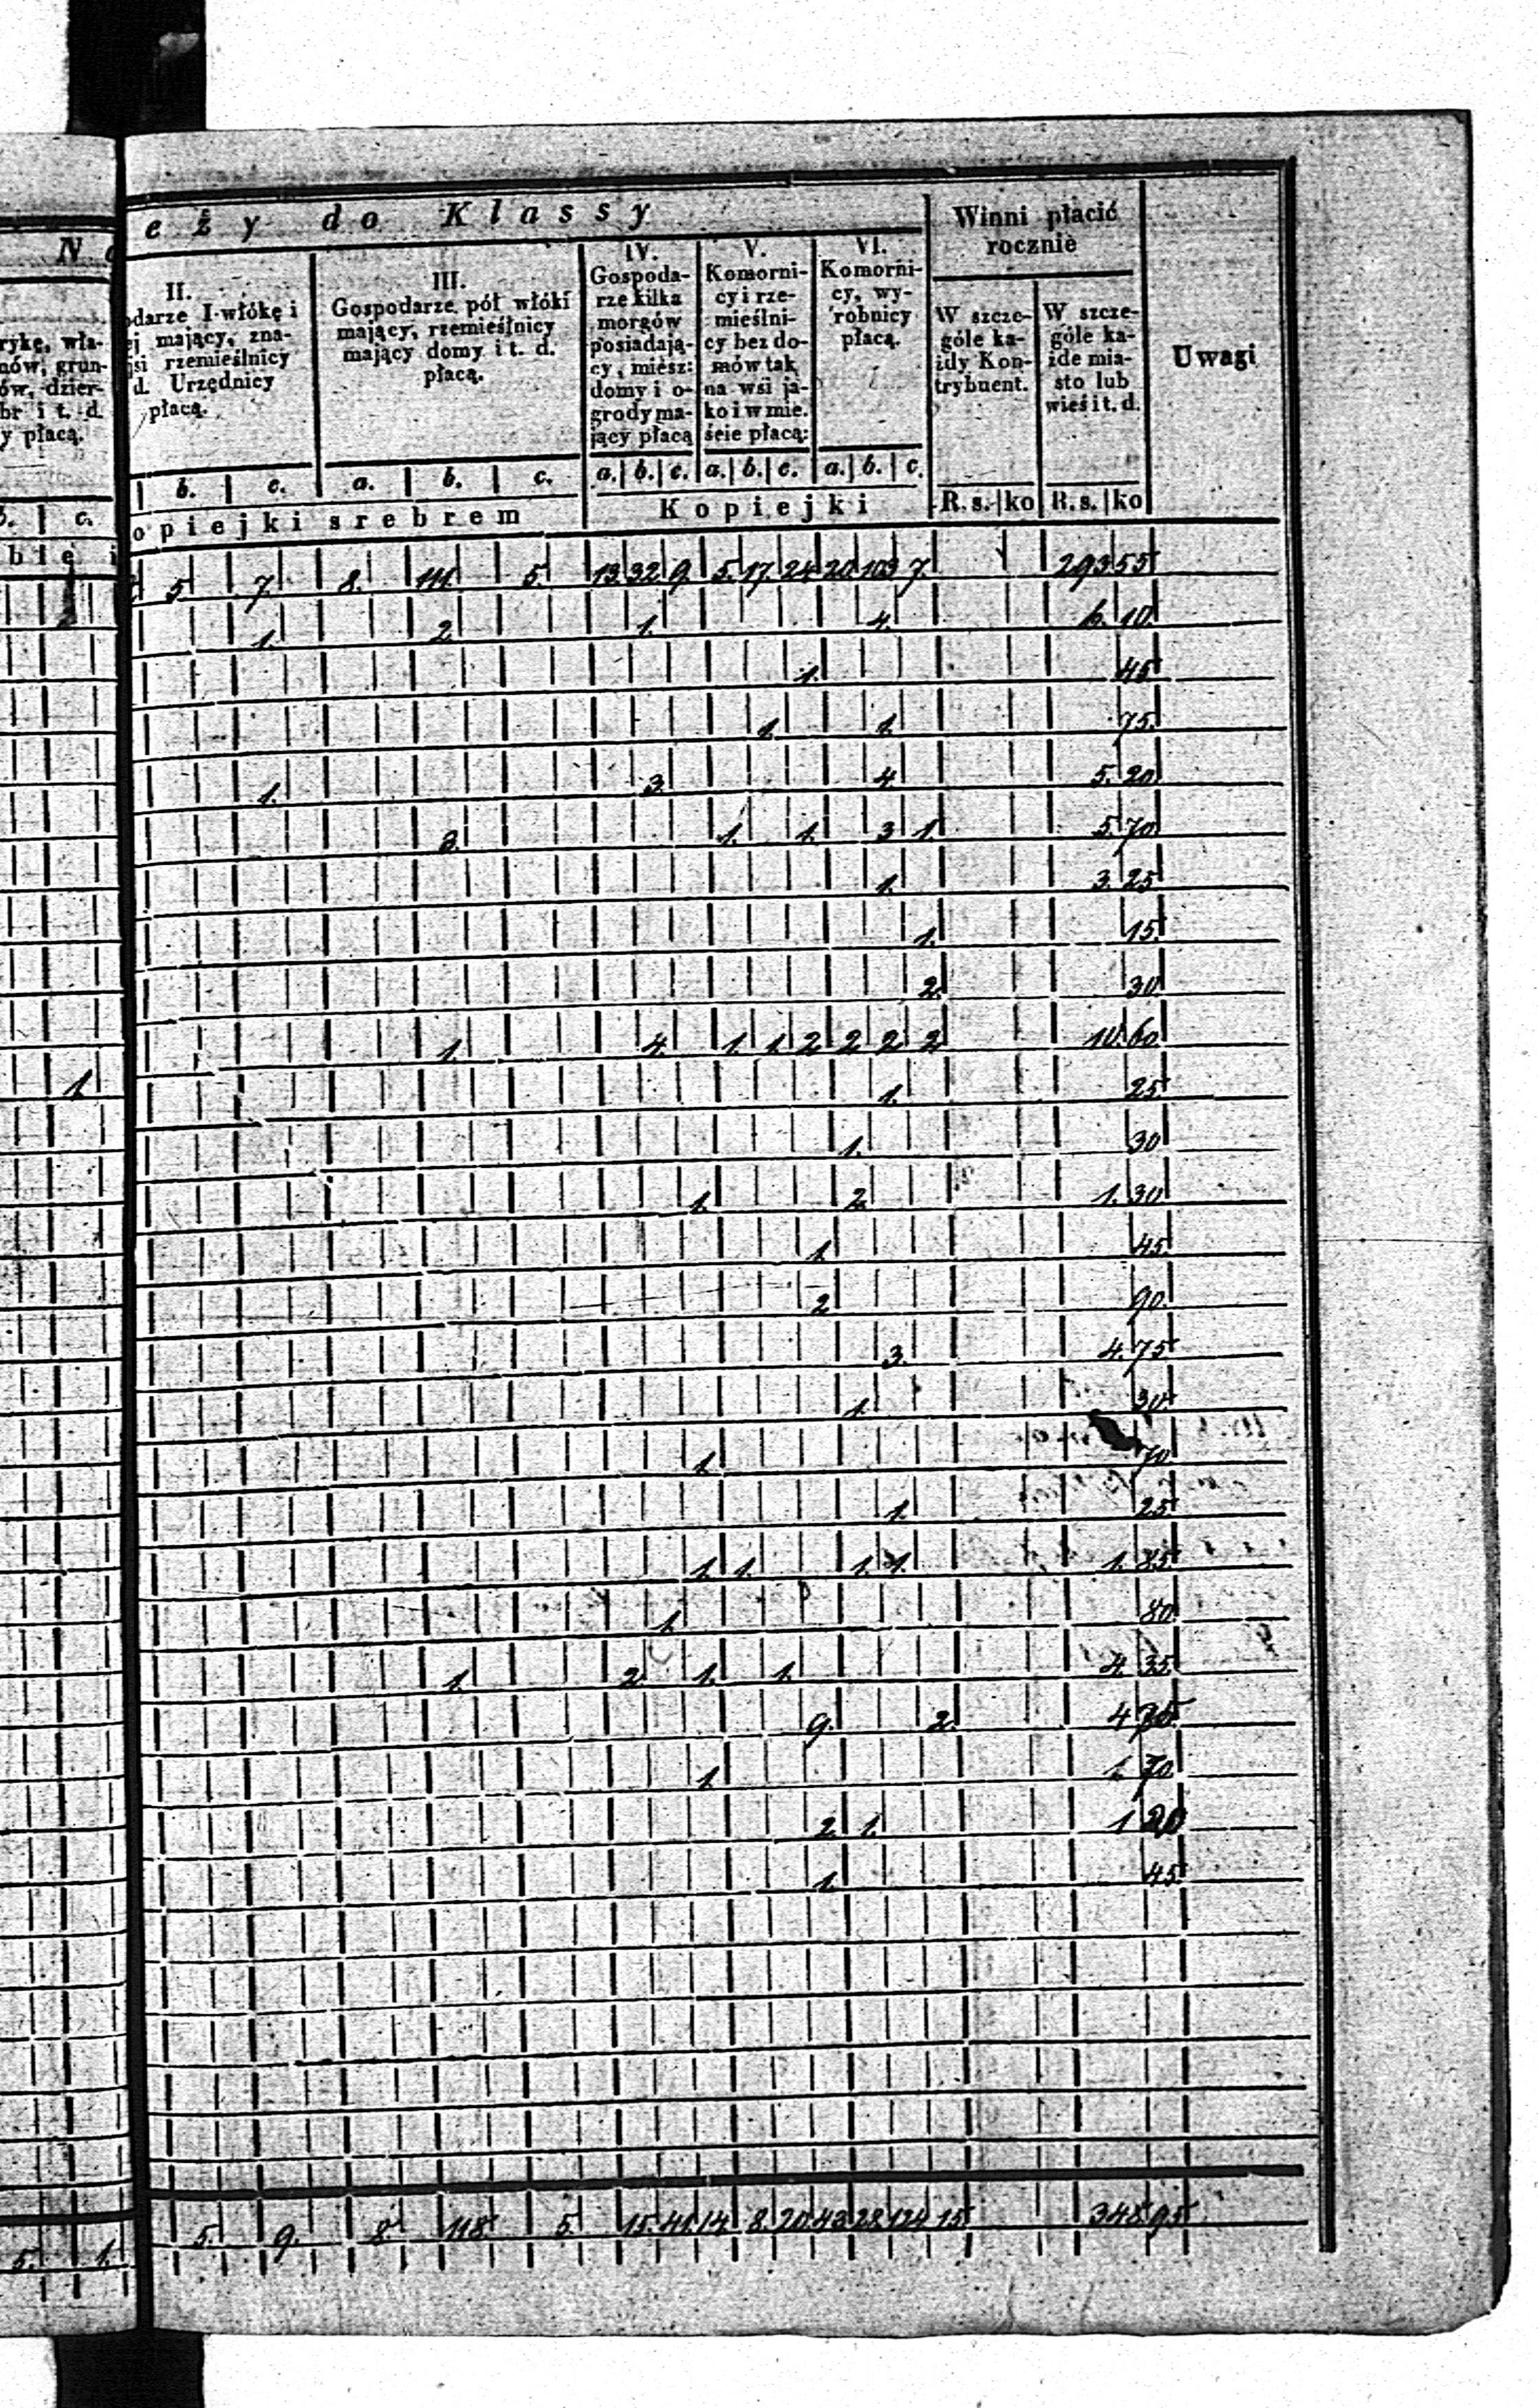 N
eży do Klassy
Winni płacić
rocznie
II.
odarze I włókę i
ej mający, zna-
jsi rzemieślnicy
d. Urzędnicy
płacą.
III.
Gospodarze pół włóki
mający, rzemieślnicy
mający domy i t. d.
płacą.
IV.
Gospoda-
rze kilka
morgów
posiadają-
cy, miesz:
domy i o-
grody ma-
jący płacą
V.
Komorni-
cy i rze-
mieślni-
cy bez do-
mów tak
na wsi ja-
ko i w mie.
ście płacą:
VI.
Komorni-
cy, wy-
robnicy
płacą.
W szcze-
góle ka-
żdy Kon-
trybuent.
W szcze-
góle ka-
żde mia-
sto lub
wieś i t. d.
Uwagi
rykę, wła-
nów, grun-
ów, dzier-
br i t. d.
y płacą.
b. c. a. b. c. a. b. c. a. b. c. a. b. c.
b. c.
opiejki srebrem Kopiejki R. s. ko R. s. ko
blei
5 7. 8. 111. 5. 13 32 9. 5. 17. 24 20 103 7. 293 55
1. 2. 1. 4. 6. 10
1. 45
1. 1. 75.
1. 3. 4. 5. 20
1. 1. 3 1. 5. 70
1. 3. 25
1. 15.
2. 30
1. 4. 1. 1. 2 2 2 2 10. 60
1
1. 25
1. 30
1. 2. 1. 30
1. 45
2 90.
3. 4. 75
1. 30
1. 70
1. 25
1. 1. 1. 1. 1. 85
1. 80
1. 2 1. 1. 4. 35
9. 2. 4
1. 70
2. 1. 1 20
1. 45
5. 9. 8 118 5. 15. 41 14. 8. 20 43 28 124 15 348 95
5. 1.